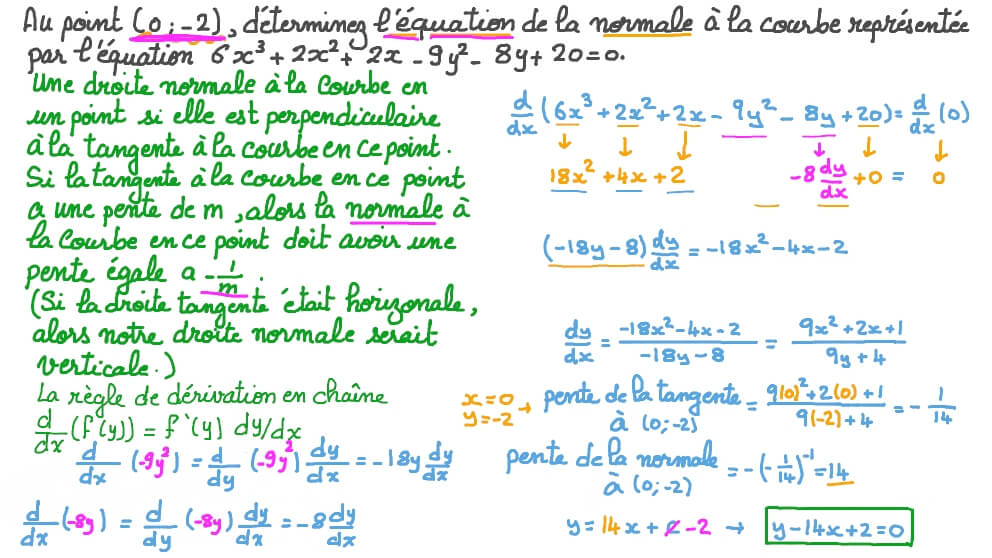 Au point (0 ; -2), déterminez l'équation de la normale à la courbe représentée
par l'équation 6x³ + 2x² + 2x - 9y² - 8y + 20 = 0.
Une droite normale à la Courbe en
un point si elle est perpendiculaire
à la tangente à la courbe en ce point.
Si la tangente à la courbe en ce point
a une pente de m, alors la normale à
la Courbe en ce point doit avoir une
pente égale a -1/m.
(Si la droite tangente était horizonale,
alors notre droite normale serait
verticale.)
La règle de dérivation en chaîne
d/dx (f(y)) = f'(y) dy/dx
d/dx (-9y²) = d/dy (-9y²) dy/dx = -18y dy/dx
d/dx (-8y) = d/dy (-8y) dy/dx = -8 dy/dx
d/dx (6x³ + 2x² + 2x - 9y² - 8y + 20) = d/dx (0)
↓ ↓ ↓ ↓ ↓ ↓
18x² + 4x + 2 -8 dy/dx + 0 = 0
(-18y - 8) dy/dx = -18x² - 4x - 2
dy/dx = (-18x² - 4x - 2)/(-18y - 8) = (9x² + 2x + 1)/(9y + 4)
x = 0
y = -2 → pente de la tangente = (9(0)² + 2(0) + 1)/(9(-2) + 4) = -1/14
à (0 ; -2)
pente de la normale = -(-1/14)⁻¹ = 14
à (0 ; -2)
y = 14x + c - 2 → y - 14x + 2 = 0